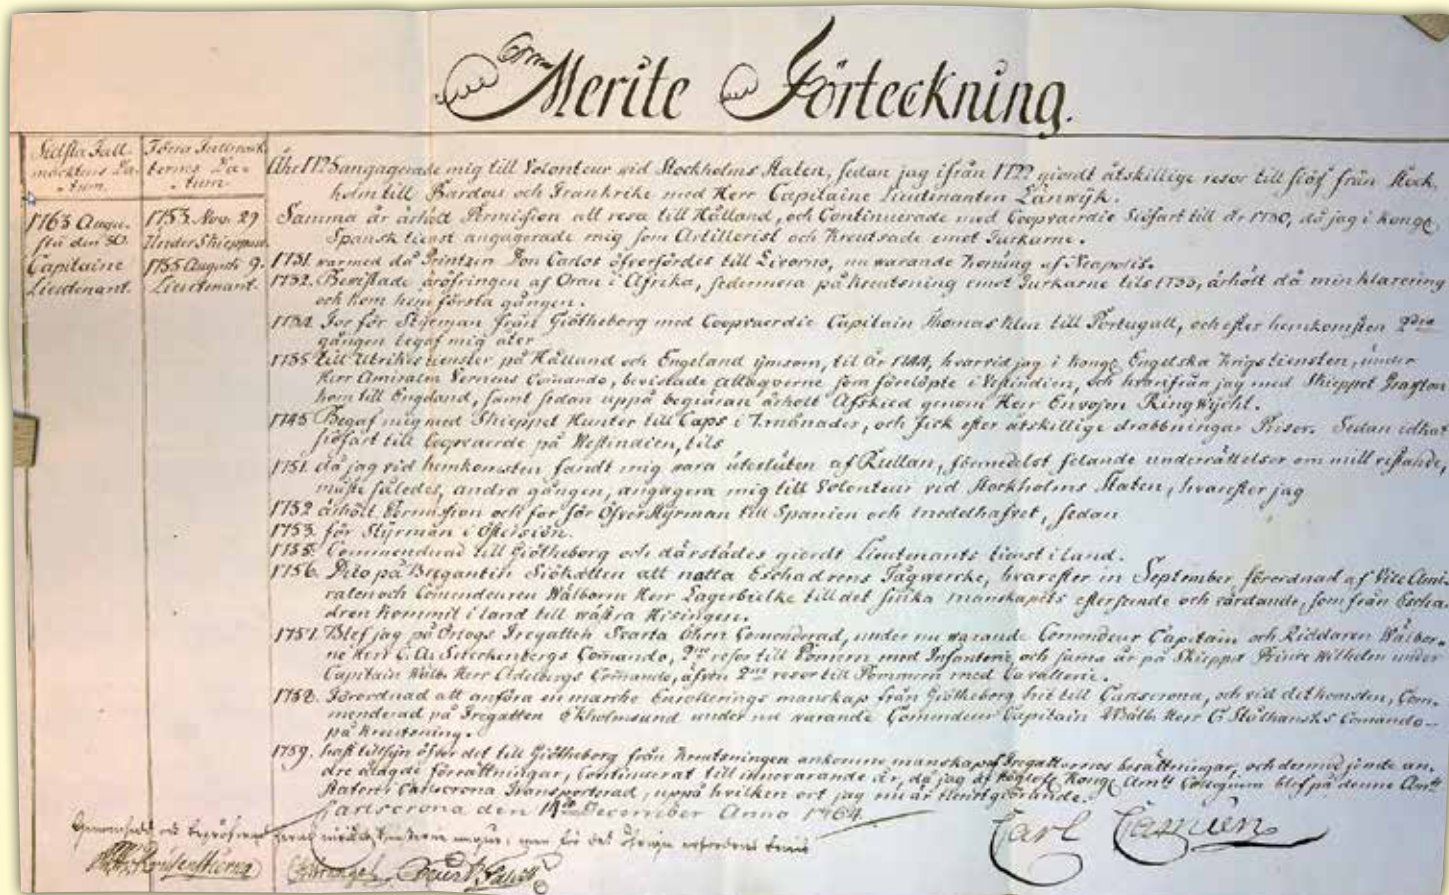 Merite Förteckning.
Sidsta Full
mäcktens Da
tum.
1763 Augu.
sti den 30.
Capitaine
Lieutenant.
Förra Fullmäck
ternes Da
tum.
1753. Nov. 29
Under Skieppar.
1755 Augusti 9.
Lieutenant.
Åhr 1725 angagerade mig till Volonteur vid Stockholms Staten, sedan jag ifrån 1722 giordt åtskillige resor till siös från Stock
holm till Bardou och Frankrike med Herr Capitaine Lieutinanten Länwijk.
Samma år ärhölt Permission att resa till Hålland, och Continuerade med Coopvaerdie Siöfart till år 1730, då jag i Kongl.
Spansk tienst angagerade mig som Artillerist och Kreutsade emot Turkarne.
1731. war med då Printzen Don Carlos öfverfördes till Livorno, nu warande Konung af Neapolis.
1732. Bevistade äröfringen af Oran i Afrika, sedermera på Kreutsning emot Turkarne tils 1733, ärhölt då min klarering
och kom hem första gången.
1734. For för Styrman från Giötheborg med Coopvaerdie Capitain Thomas till Portugall, och efter hemkomsten 2dra
gången begaf mig åter
1735 till Utrikes tienster på Hålland och Engeland ÿmsom, til år 1744, hvarvid jag i Kongl. Engelska Krigs tiensten, under
Herr Amiralen Vernons Comando, bevistade attaquerne som förelöpte i Vestindien, och hvarifrån jag med Skieppet Grafton
kom till Engeland, samt sedan uppå begiäran ärhölt Afskied genom Herr Envojen Ringwÿcht.
1745 Begaf mig med Skieppet Hunter till Caps i 7. månader, och fick efter åtskillige drabbningar Priser. Sedan idkat
siöfart till Coopvaerde på Westindien, tils
1751. då jag vid hemkomsten fandt mig vara utesluten af Rullan, förmedelst felande underrättelser om mitt vistande,
måste således, andra gången, angagera mig till Volonteur vid Stockholms Staten, hvarefter jag
1752 ärhölt Permission och for för Öfverstyrman till Spanien och medelhafvet, sedan
1753. för Styrman i Östersiön.
1755. Commenderad till Giötheborg och därstädes giordt Lieutenants tienst i land.
1756. Dito på Brigantin Siökatten att nätta Eschadrens Tågwercke, hvarefter in September, förordnad af Vice Ami-
ralen och Comendeuren Wälborne Herr Lagerbielke till det siuka manskapets efterseende och vårdande, som från Escha
dren kommit i land till wästra Hisingen.
1757. Blef jag på Örlogs Fregatten Svarta Örn Comenderad, under nu warande Comendeur Capitain och Riddaren Wälbor-
ne Herr C. A. Comando, 2ne resor till Pomern med Infanterie, och sama år på Skieppet Prins Wilhelm under
Capitain Wälb. Herr Comando, äfven 2ne resor till Pommern med Cavallerie.
1758. Förordnad att anföra en marche Enrollerings manskap från Giötheborg hit till Carlscrona, och vid ditkomsten, Com-
menderad på Fregatten Ekholmsund under nu varande Comendeur Capitain Wälb. Herr G. Stålhansks Comando
på Kreutsning.
1759. haft tillsyn öfver det till Giötheborg från Kreutsningen ankomne manskap af Fregatternes besättningar, och dermed jemte an-
dre ålagde förrättningar, Continuerat till innevarande år, då jag af Höglofl. Kongl. Amts Collegium blef på denne Amts
Staten i Carlscrona Transporterad, uppå hvilken ort jag nu är tienstgiörande.
Carlscrona den December Anno 1764
Carl